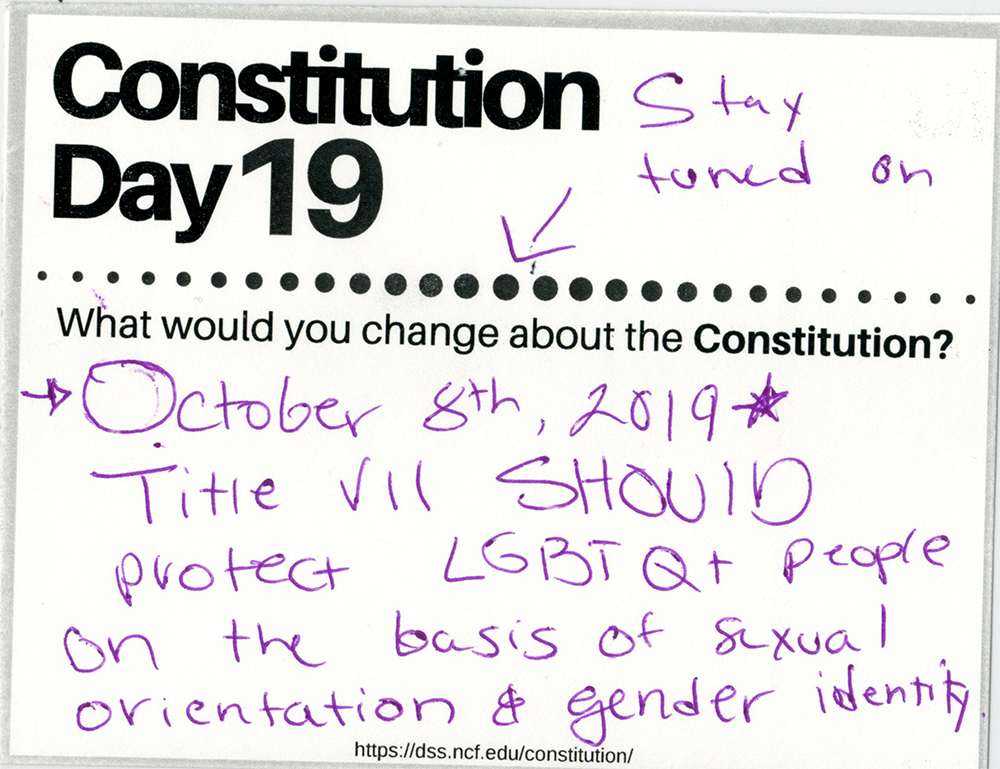 Constitution
Day 19
Stay
tuned on
What would you change about the Constitution?
October 8th, 2019
Title VII SHOUlD
protect LGBTQ+ people
on the basis of sexual
orientation & gender identity.
https://dss.ncf.edu/constitution/